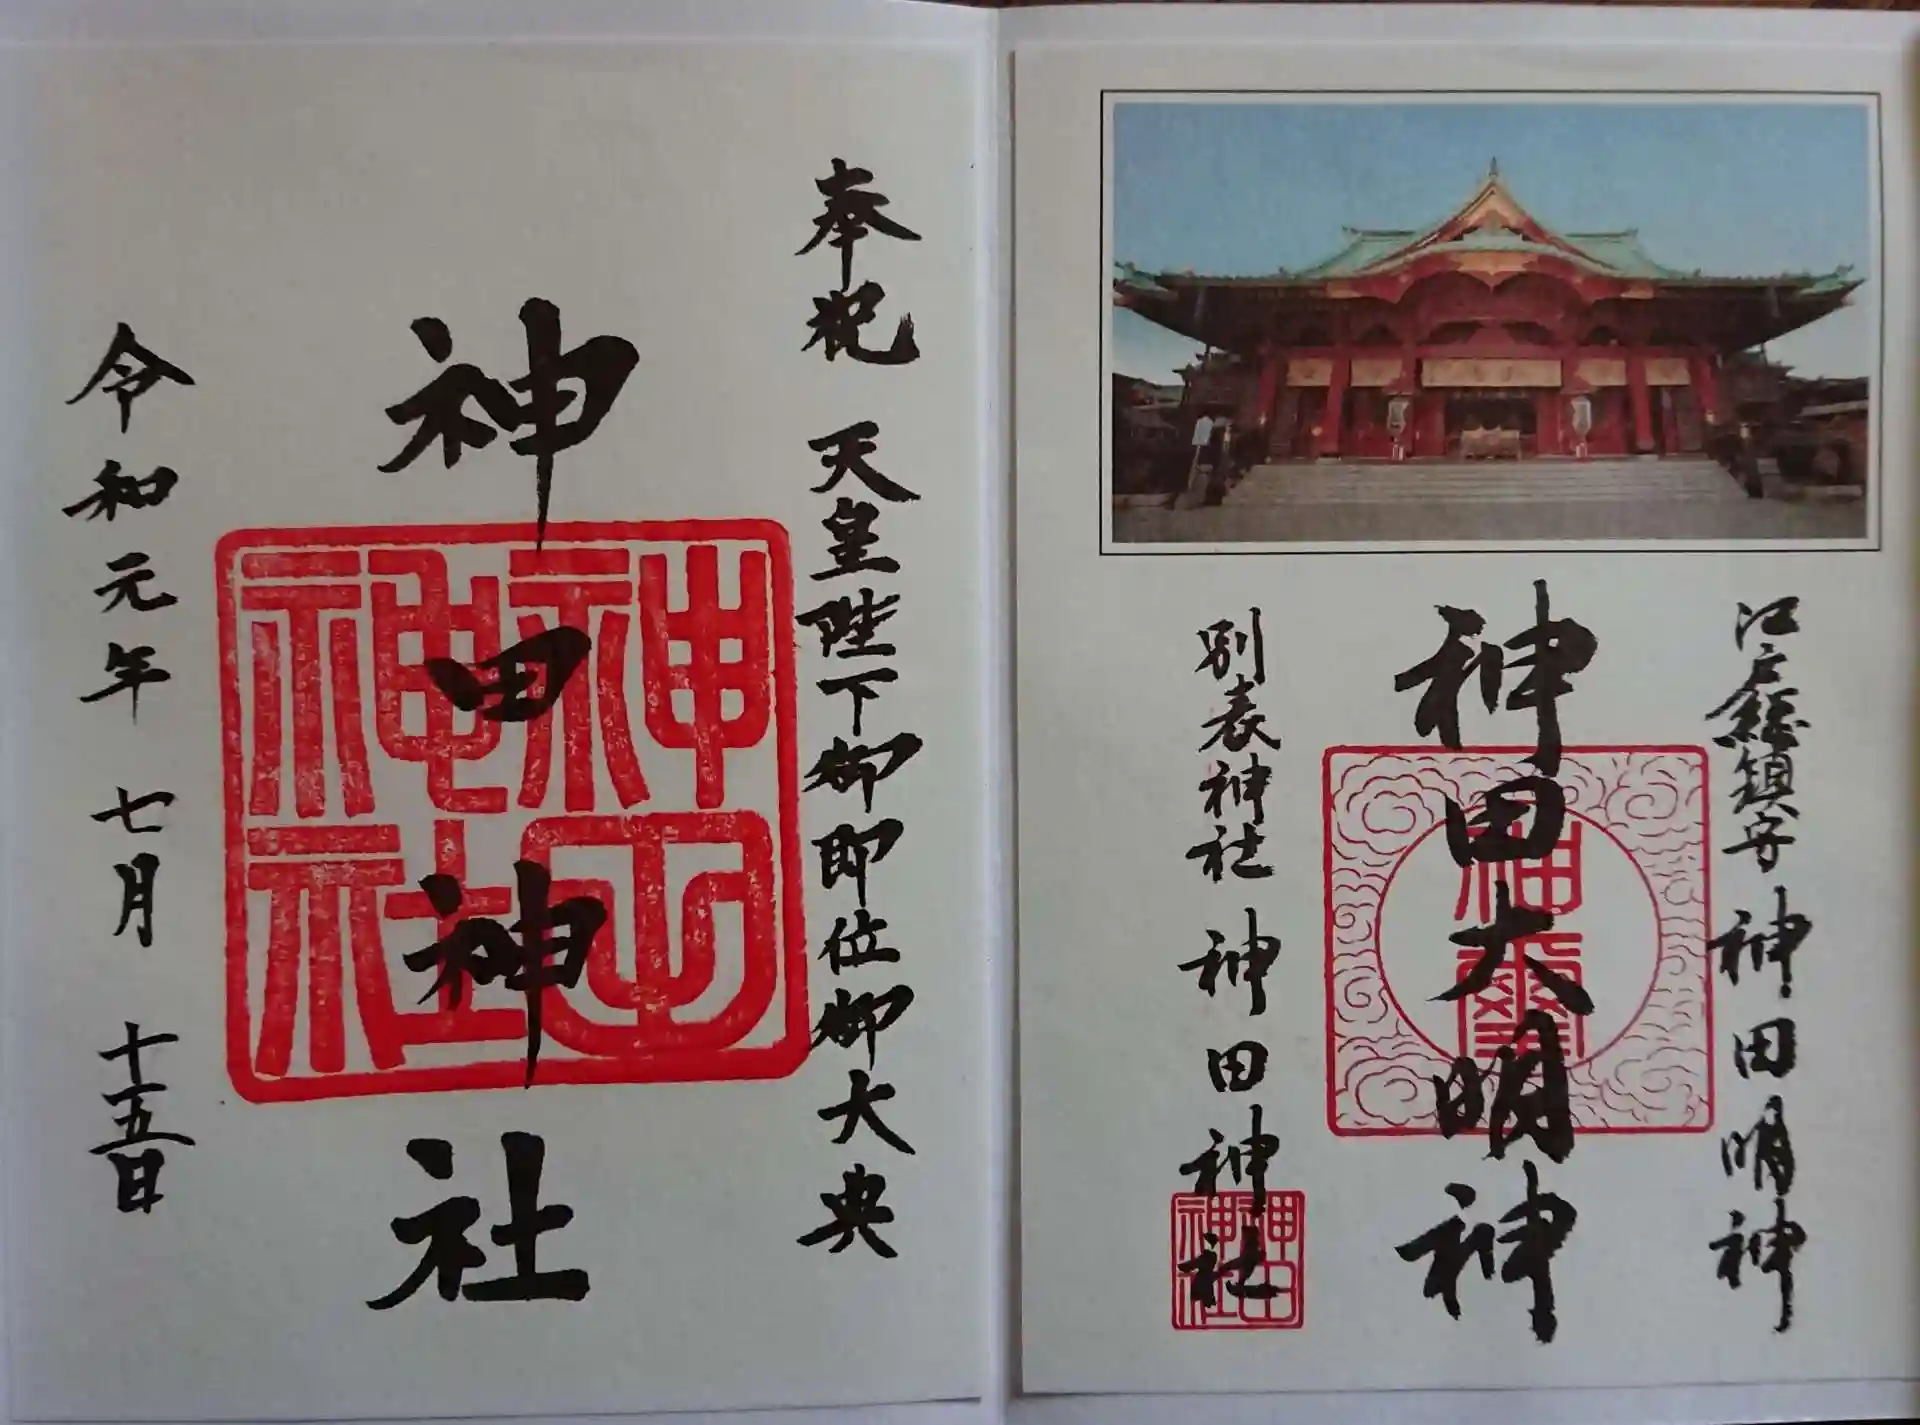 江戸総鎮守 神田明神
神田大明神
神璽
別表神社 神田神社
神田神社
奉祝 天皇陛下御即位御大典
神田神社
神田神社
令和元年 七月 十五日